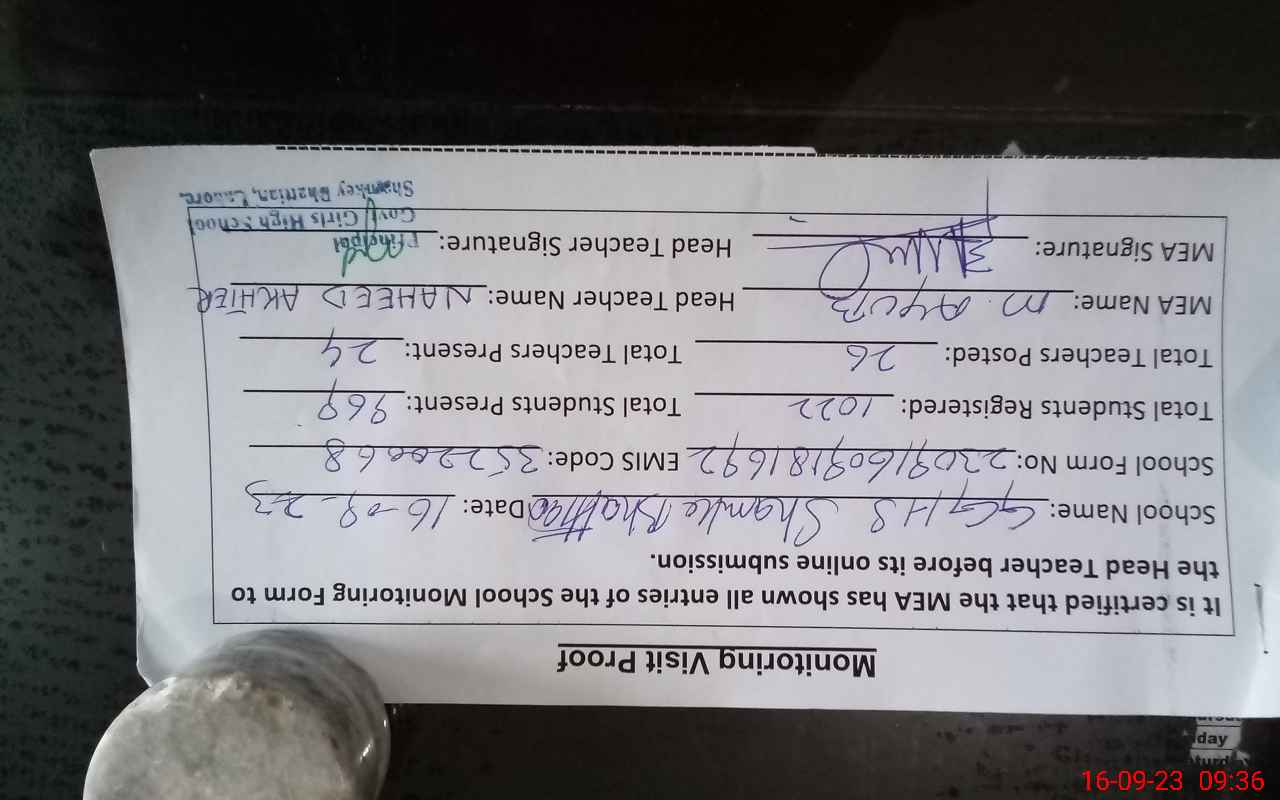 Monitoring Visit Proof
It is certified that the MEA has shown all entries of the School Monitoring Form to
the Head Teacher before its online submission.
School Name: GGHS Shamke Bhattian Date: 16-09-23
School Form No: 23091609181692 EMIS Code: 35220068
Total Students Registered: 1022 Total Students Present: 969
Total Teachers Posted: 26 Total Teachers Present: 24
MEA Name: M. AYUB Head Teacher Name: NAHEED AKHTER
MEA Signature: Head Teacher Signature:
Principal
Govt Girls High School
Shamkey Bhattian, Lahore.
day
16-09-23 09:36